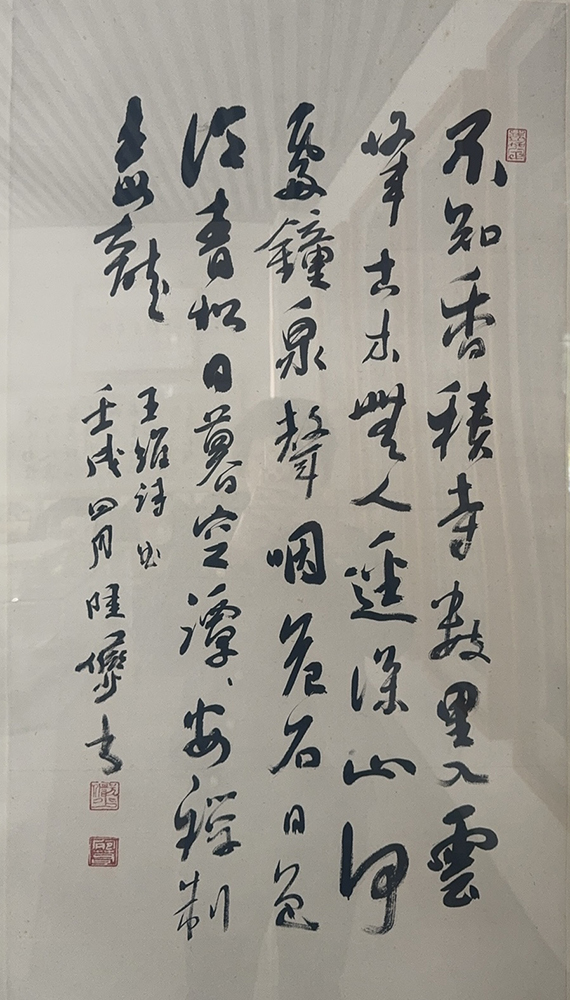 不知香積寺數里入雲
峯古木無人逕深山何
處鐘泉聲咽危石日色
冷青松日暮空潭、安禪制
毒龍
王維詩 曲
壬戌四月 陸儼少